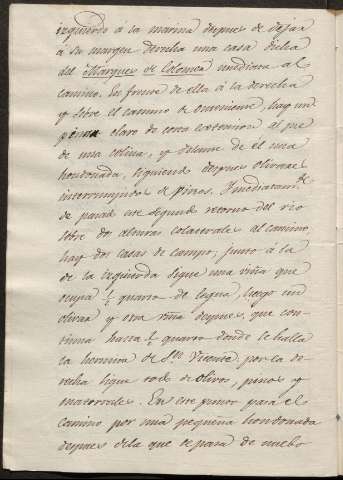 izquierdo á la marina despues de dejar
á su margen derecha una casa dicha
del Marques de Colomea imediata al
camino. En frente de ella á la derecha
y sobre el camino de Onteniente, hay un
pinar claro de corta extension al pie
de una colina, y delante de el una
hondonada, siguiendo despues olivares
interrumpidos de Pinos. Ymediatam.te
de pasad este segundo recorno del rio
sobre dos alturas colaterales al camino,
hay dos casas de campo; junto á la
de la izquierda sigue una viña que
ocupa ½ quarto de legua, luego un
olivar y otra viña despues, que con-
tinua hasta ½ quarto donde se halla
la hermita de S.n Vicente: por la de-
recha sigue todo de olivos, pinos y
matorrales. En este punto pasa el
camino por una pequeña hondonada
despues dela que se pasa de nuebo